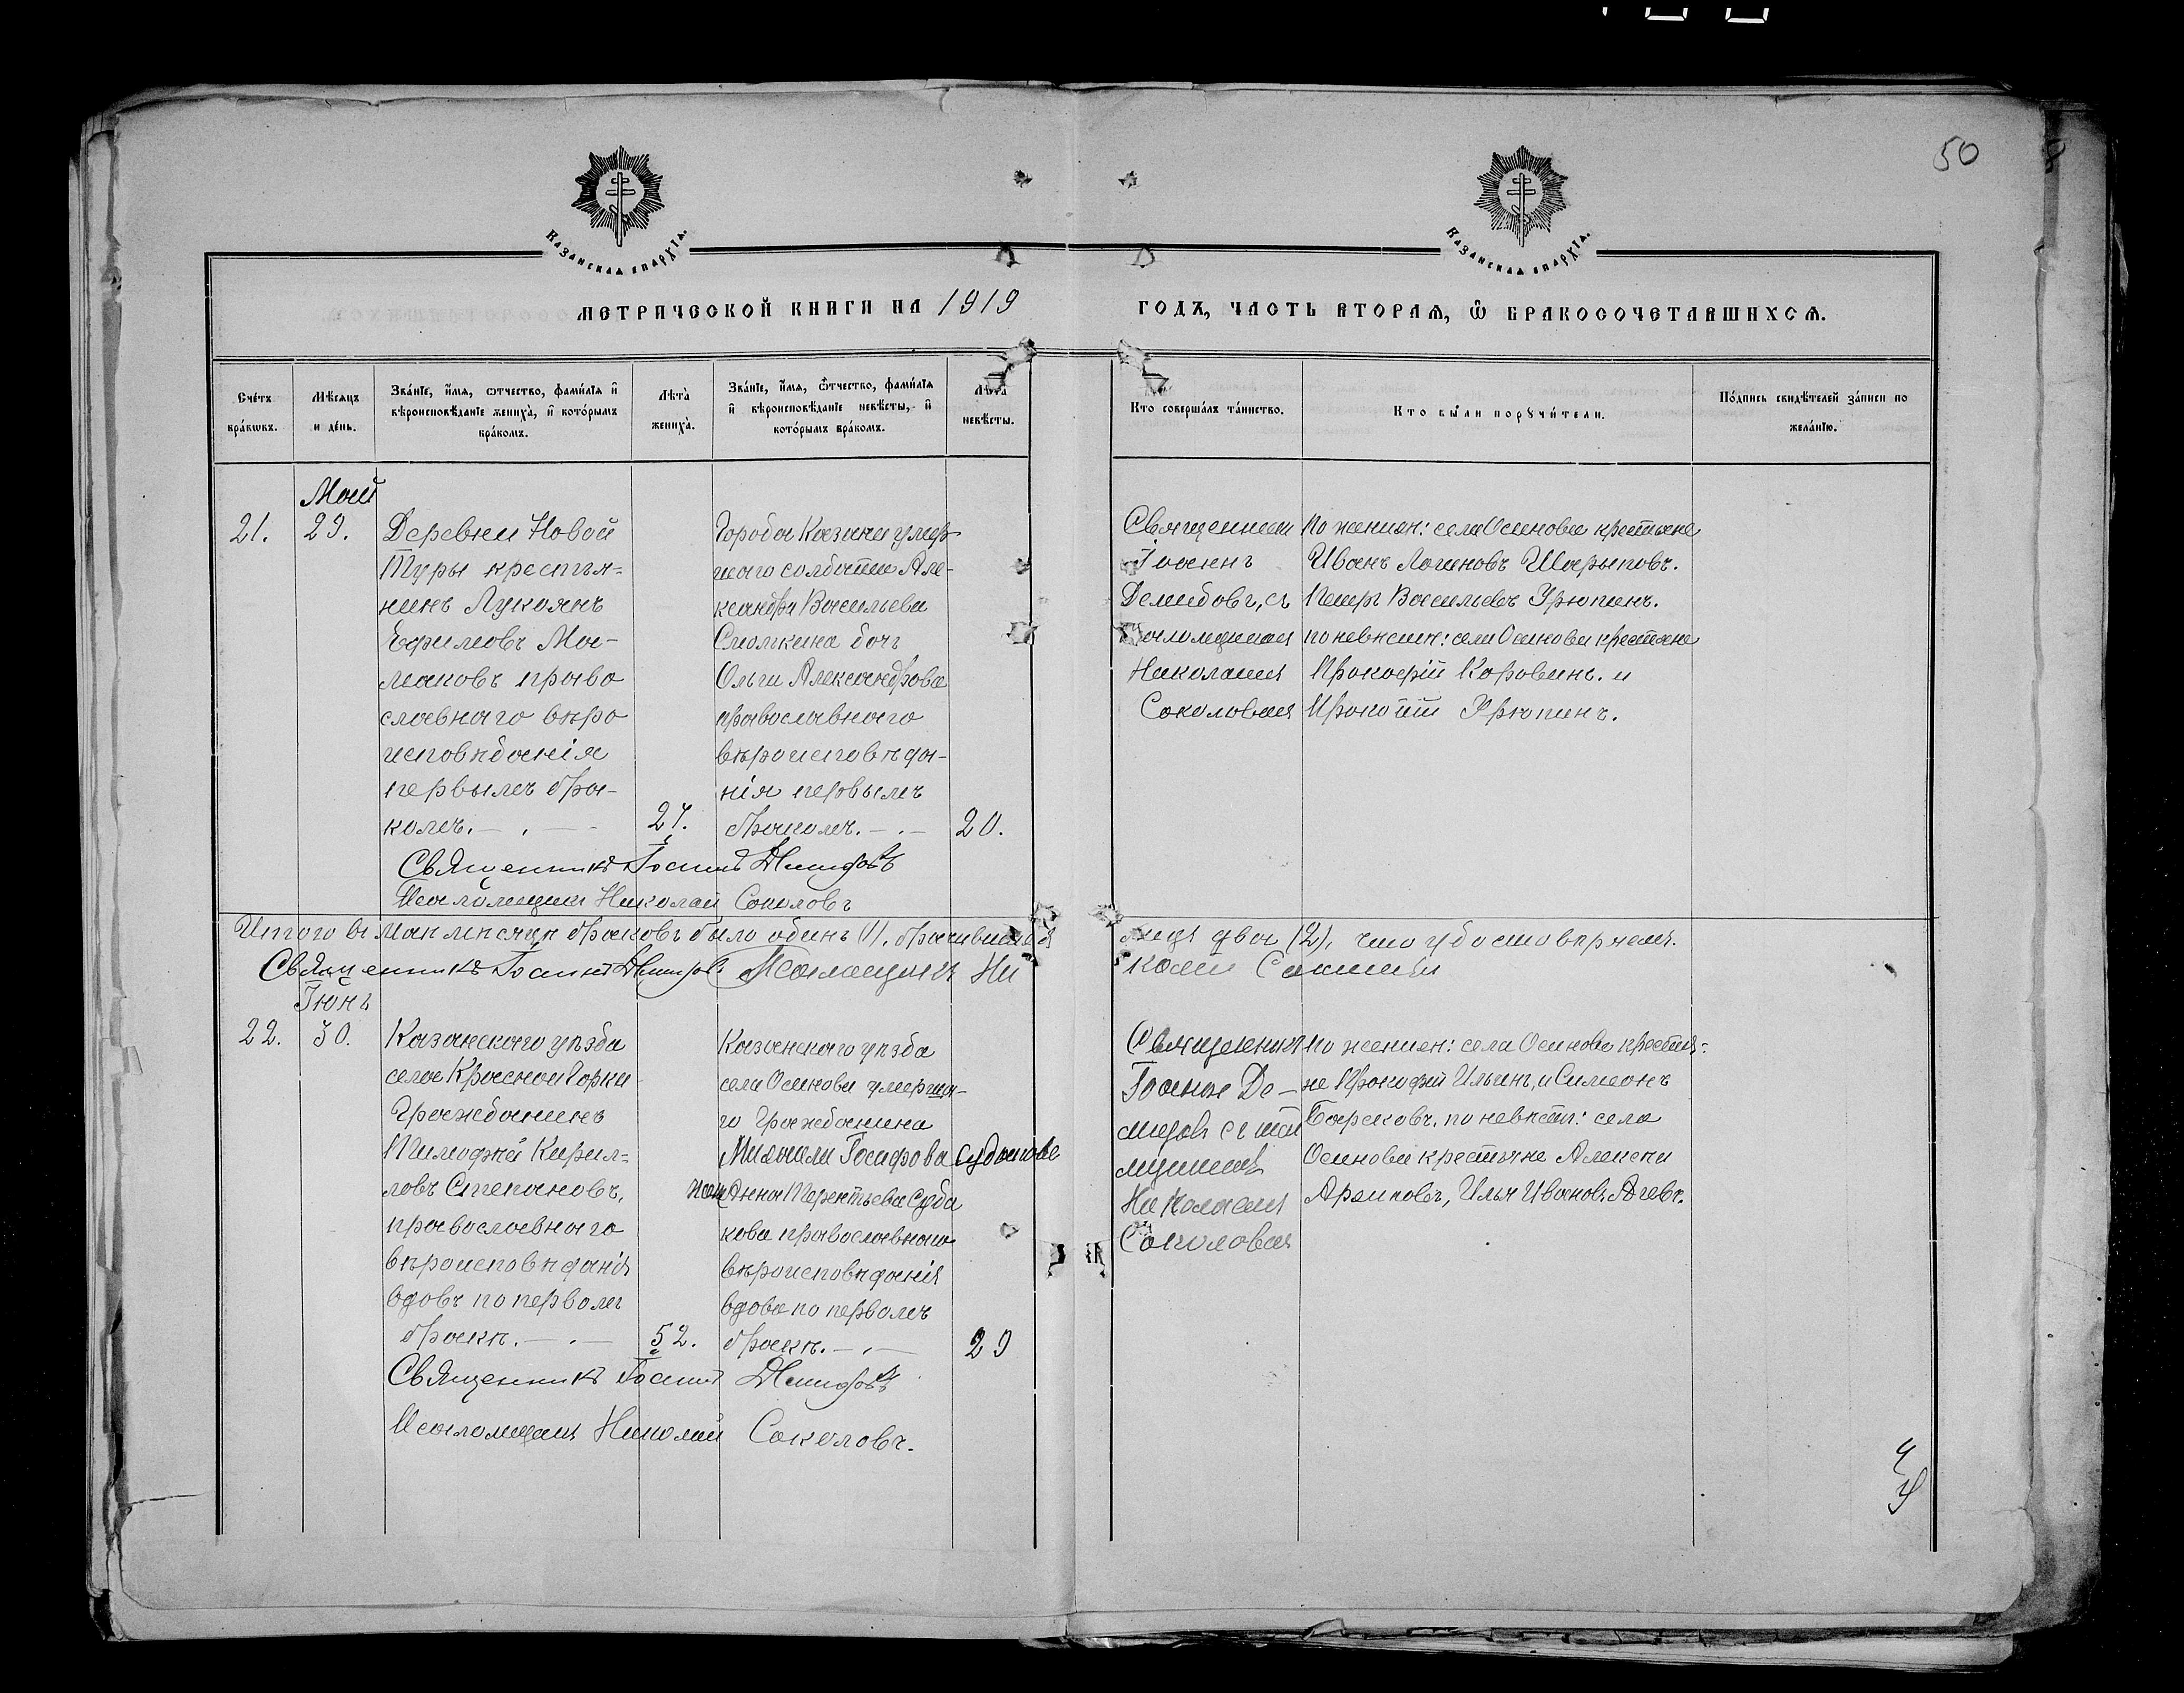 50
Казанская епархіа.
Казанская епархіа.
Метрической книги на 1919
годъ, часть вторая, ѡ бракосочетавшихся.
Счетъ браковъ.
Мѣсяцъ и день.
Званіе, имя, отчество, фамилія и вѣроисповѣданіе жениха, и которымъ бракомъ.
Лѣта жениха.
Званіе, имя, отчество, фамилія и вѣроисповѣданіе невѣсты, и которымъ бракомъ.
Лѣта невѣсты.
Кто совершалъ таинство.
Кто были поручители.
Подпись свидѣтелей записи по желанію.
Май
21.
29.
Деревни Новой
Туры крестья=
нинъ Лукоянъ
Ефимовъ Мо-
маковъ право
славнаго вѣро
исповѣданія
первымъ бра-
комъ.
27.
Города Казани умер
шаго солдата Але-
ксандра Васильева
Смолкина дочь
Ольга Александрова
православнаго
вѣроисповѣда-
нія первымъ
бракомъ.
20.
Священникъ
Іоаннъ
Демидовъ, съ
псаломщикомъ
Николаемъ
Соколовымъ
по женихѣ: села Осинова крестьяне
Иванъ Логиновъ Шарыповъ.
Петръ Васильевъ Урюпинъ.
по невѣстѣ: села Осинова крестьяне
Прокофій Коровинъ. и
Прокопій Урюпинъ.
Священникъ Іоаннъ Демидовъ
Псаломщикъ Николай Соколовъ
Итого въ маѣ мѣсяцѣ браковъ было одинъ (1), брачившихся
лица два (2), что удостовѣряемъ.
Священникъ Іоаннъ Демидовъ Псаломщикъ Ни
колай Соколовъ
Іюнь
22.
30.
Казанскаго уѣзда
села Красной Горки
Гражданинъ
Тимофей Кирил=
ловъ Степановъ,
православнаго
вѣроисповѣданія
вдовъ по первомъ
бракѣ.
52.
Казанскаго уѣзда
села Осинова умерша-
го Гражданина
Михаила Іосифова Судакова
жена Анна Терентьева Суда
кова православнаго
вѣроисповѣданія
вдова по первомъ
бракѣ.
29
Священникъ
Іоаннъ Де-
мидовъ съ псало
мщикомъ
Николаемъ
Соколовымъ
по женихѣ: села Осинова крестья=
не Прокофій Ильинъ, и Симеонъ
Барсковъ. по невѣстѣ: села
Осинова крестьяне Алексѣй
Архиповъ, Илья Ивановъ
Священникъ Іоаннъ Демидовъ
Псаломщикъ Николай Соколовъ.